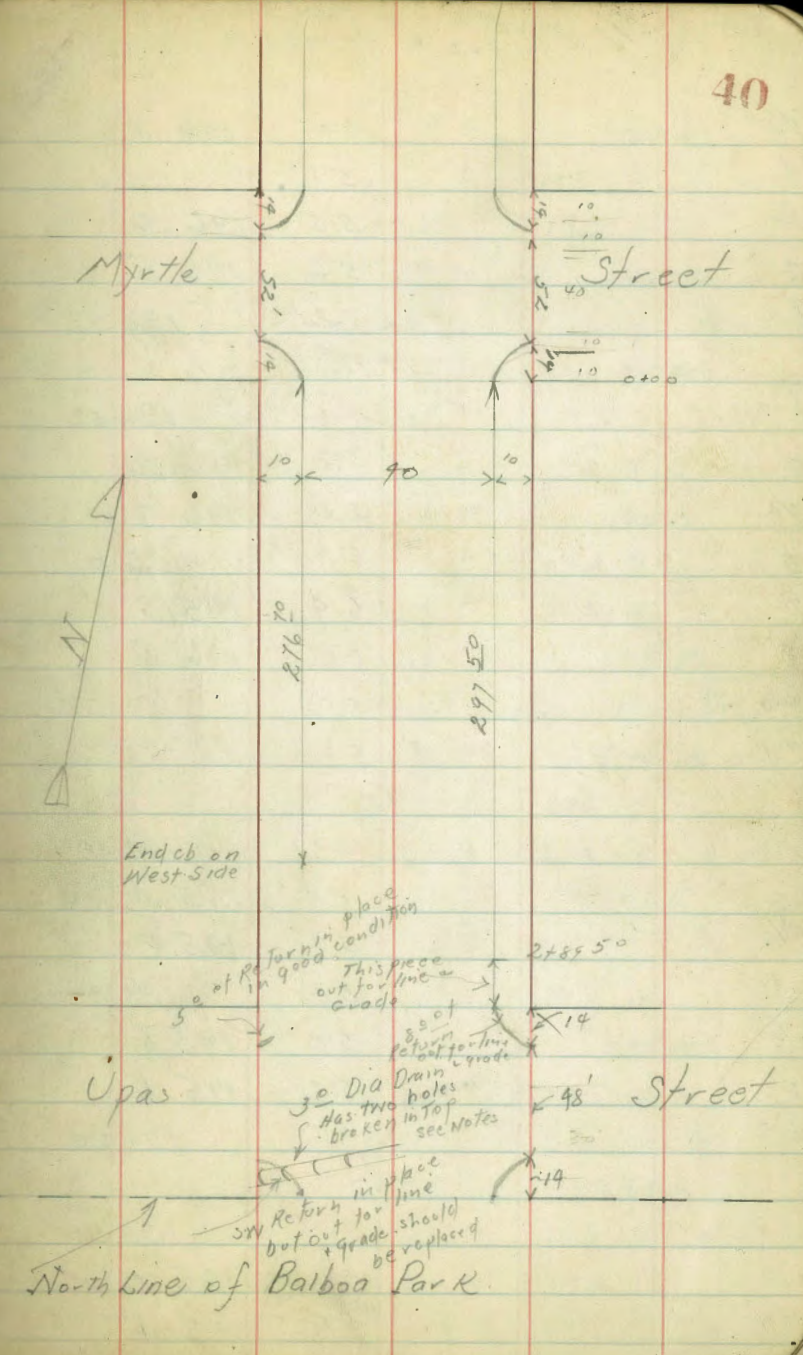 40
14
14
10
10
Myrtle
52'
52
40
Street
14
14
10
10
0+00
10
90
10
N
276 70
297 50
End cb on
West Side
5 0 of Return in place
in good condition
This piece
out for line &
Grade
2+89 50
14
Return
out for line
& grade
Upas
3 0 Dia Drain
Has two holes
broken in Top
see Notes
48'
Street
SW Return in place
but out for line
+ grade should
be replaced
14
North Line of Balboa Park